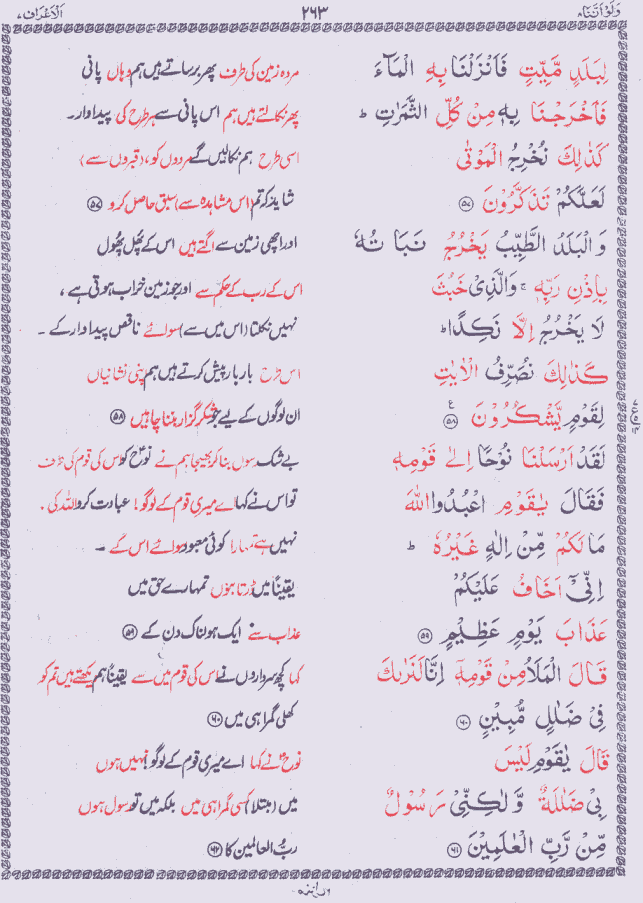 وَلَوۡ اَنَّنَا۸ ۲۶۳ اَلۡاَعۡرَاف۷
لِبَلَدٍ مَّيِّتٍ فَاَنۡزَلۡنَا بِهِ الۡمَآءَ مردہ زمین کی طرف پھر برساتے ہیں ہم وہاں پانی
فَاَخۡرَجۡنَا بِهٖ مِنۡ كُلِّ الثَّمَرٰتِ ؕ پھر نکالتے ہیں ہم اس پانی سے ہر طرح کی پیداوار۔
كَذٰلِكَ نُخۡرِجُ الۡمَوۡتٰى اسی طرح ہم نکالیں گے مردوں کو، (قبروں سے)
لَعَلَّكُمۡ تَذَكَّرُوۡنَ ﴿۵۷﴾ شاید کہ تم (اس مشاہدہ سے) سبق حاصل کرو ﴿۵۷﴾
وَالۡبَلَدُ الطَّيِّبُ يَخۡرُجُ نَبَاتُهٗ اور اچھی زمین سے اگتے ہیں اس کے پھل پھول
بِاِذۡنِ رَبِّهٖ ۚ وَالَّذِىۡ خَبُثَ اس کے رب کے حکم سے اور جو زمین خراب ہوتی ہے ،
لَا يَخۡرُجُ اِلَّا نَكِدًا ؕ نہیں نکلتا (اس میں سے) سوائے ناقص پیداوار کے ۔
كَذٰلِكَ نُصَرِّفُ الۡاٰيٰتِ اس طرح بار بار پیش کرتے ہیں ہم اپنی نشانیاں
لِقَوۡمٍ يَّشۡكُرُوۡنَ ﴿۵۸﴾ ع ان لوگوں کے لیے جو شکر گزار بننا چاہیں ﴿۵۸﴾
لَقَدۡ اَرۡسَلۡنَا نُوۡحًا اِلٰى قَوۡمِهٖ بے شک رسول بنا کر بھیجا ہم نے نوحؑ کو اس کی قوم کی طرف
فَقَالَ يٰقَوۡمِ اعۡبُدُوا اللّٰهَ تو اس نے کہا اے میری قوم کے لوگو! عبادت کرو اللہ کی .
مَا لَكُمۡ مِّنۡ اِلٰهٍ غَيۡرُهٗ ؕ نہیں ہے تمہارا کوئی معبود سوائے اس کے ۔
اِنِّىۡۤ اَخَافُ عَلَيۡكُمۡ یقیناً میں ڈرتا ہوں تمہارے حق میں
عَذَابَ يَوۡمٍ عَظِيۡمٍ ﴿۵۹﴾ عذاب سے ایک ہولناک دن کے ﴿۵۹﴾
قَالَ الۡمَلَاُ مِنۡ قَوۡمِهٖۤ اِنَّا لَنَرٰٮكَ کہا کچھ سرداروں نے اس کی قوم میں سے یقیناً ہم دیکھتے ہیں تم کو
فِىۡ ضَلٰلٍ مُّبِيۡنٍ ﴿۶۰﴾ کھلی گمراہی میں ﴿۶۰﴾
قَالَ يٰقَوۡمِ لَيۡسَ نوحؑ نے کہا اے میری قوم کے لوگو! نہیں ہوں
بِىۡ ضَلٰلَةٌ وَّلٰكِنِّىۡ رَسُوۡلٌ میں (مبتلا) کسی گمراہی میں بلکہ میں تو رسول ہوں
مِّنۡ رَّبِّ الۡعٰلَمِيۡنَ ﴿۶۱﴾ ربُّ العالمین کا ﴿۶۱﴾